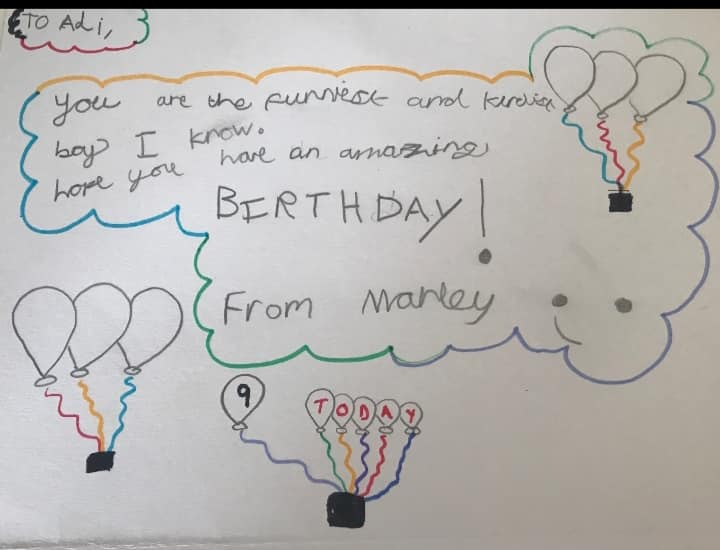 TO Adi,
you are the funniest and kindist
boy I know.
hope you have an amazing
BIRTHDAY!
From Marley
9
TODAY